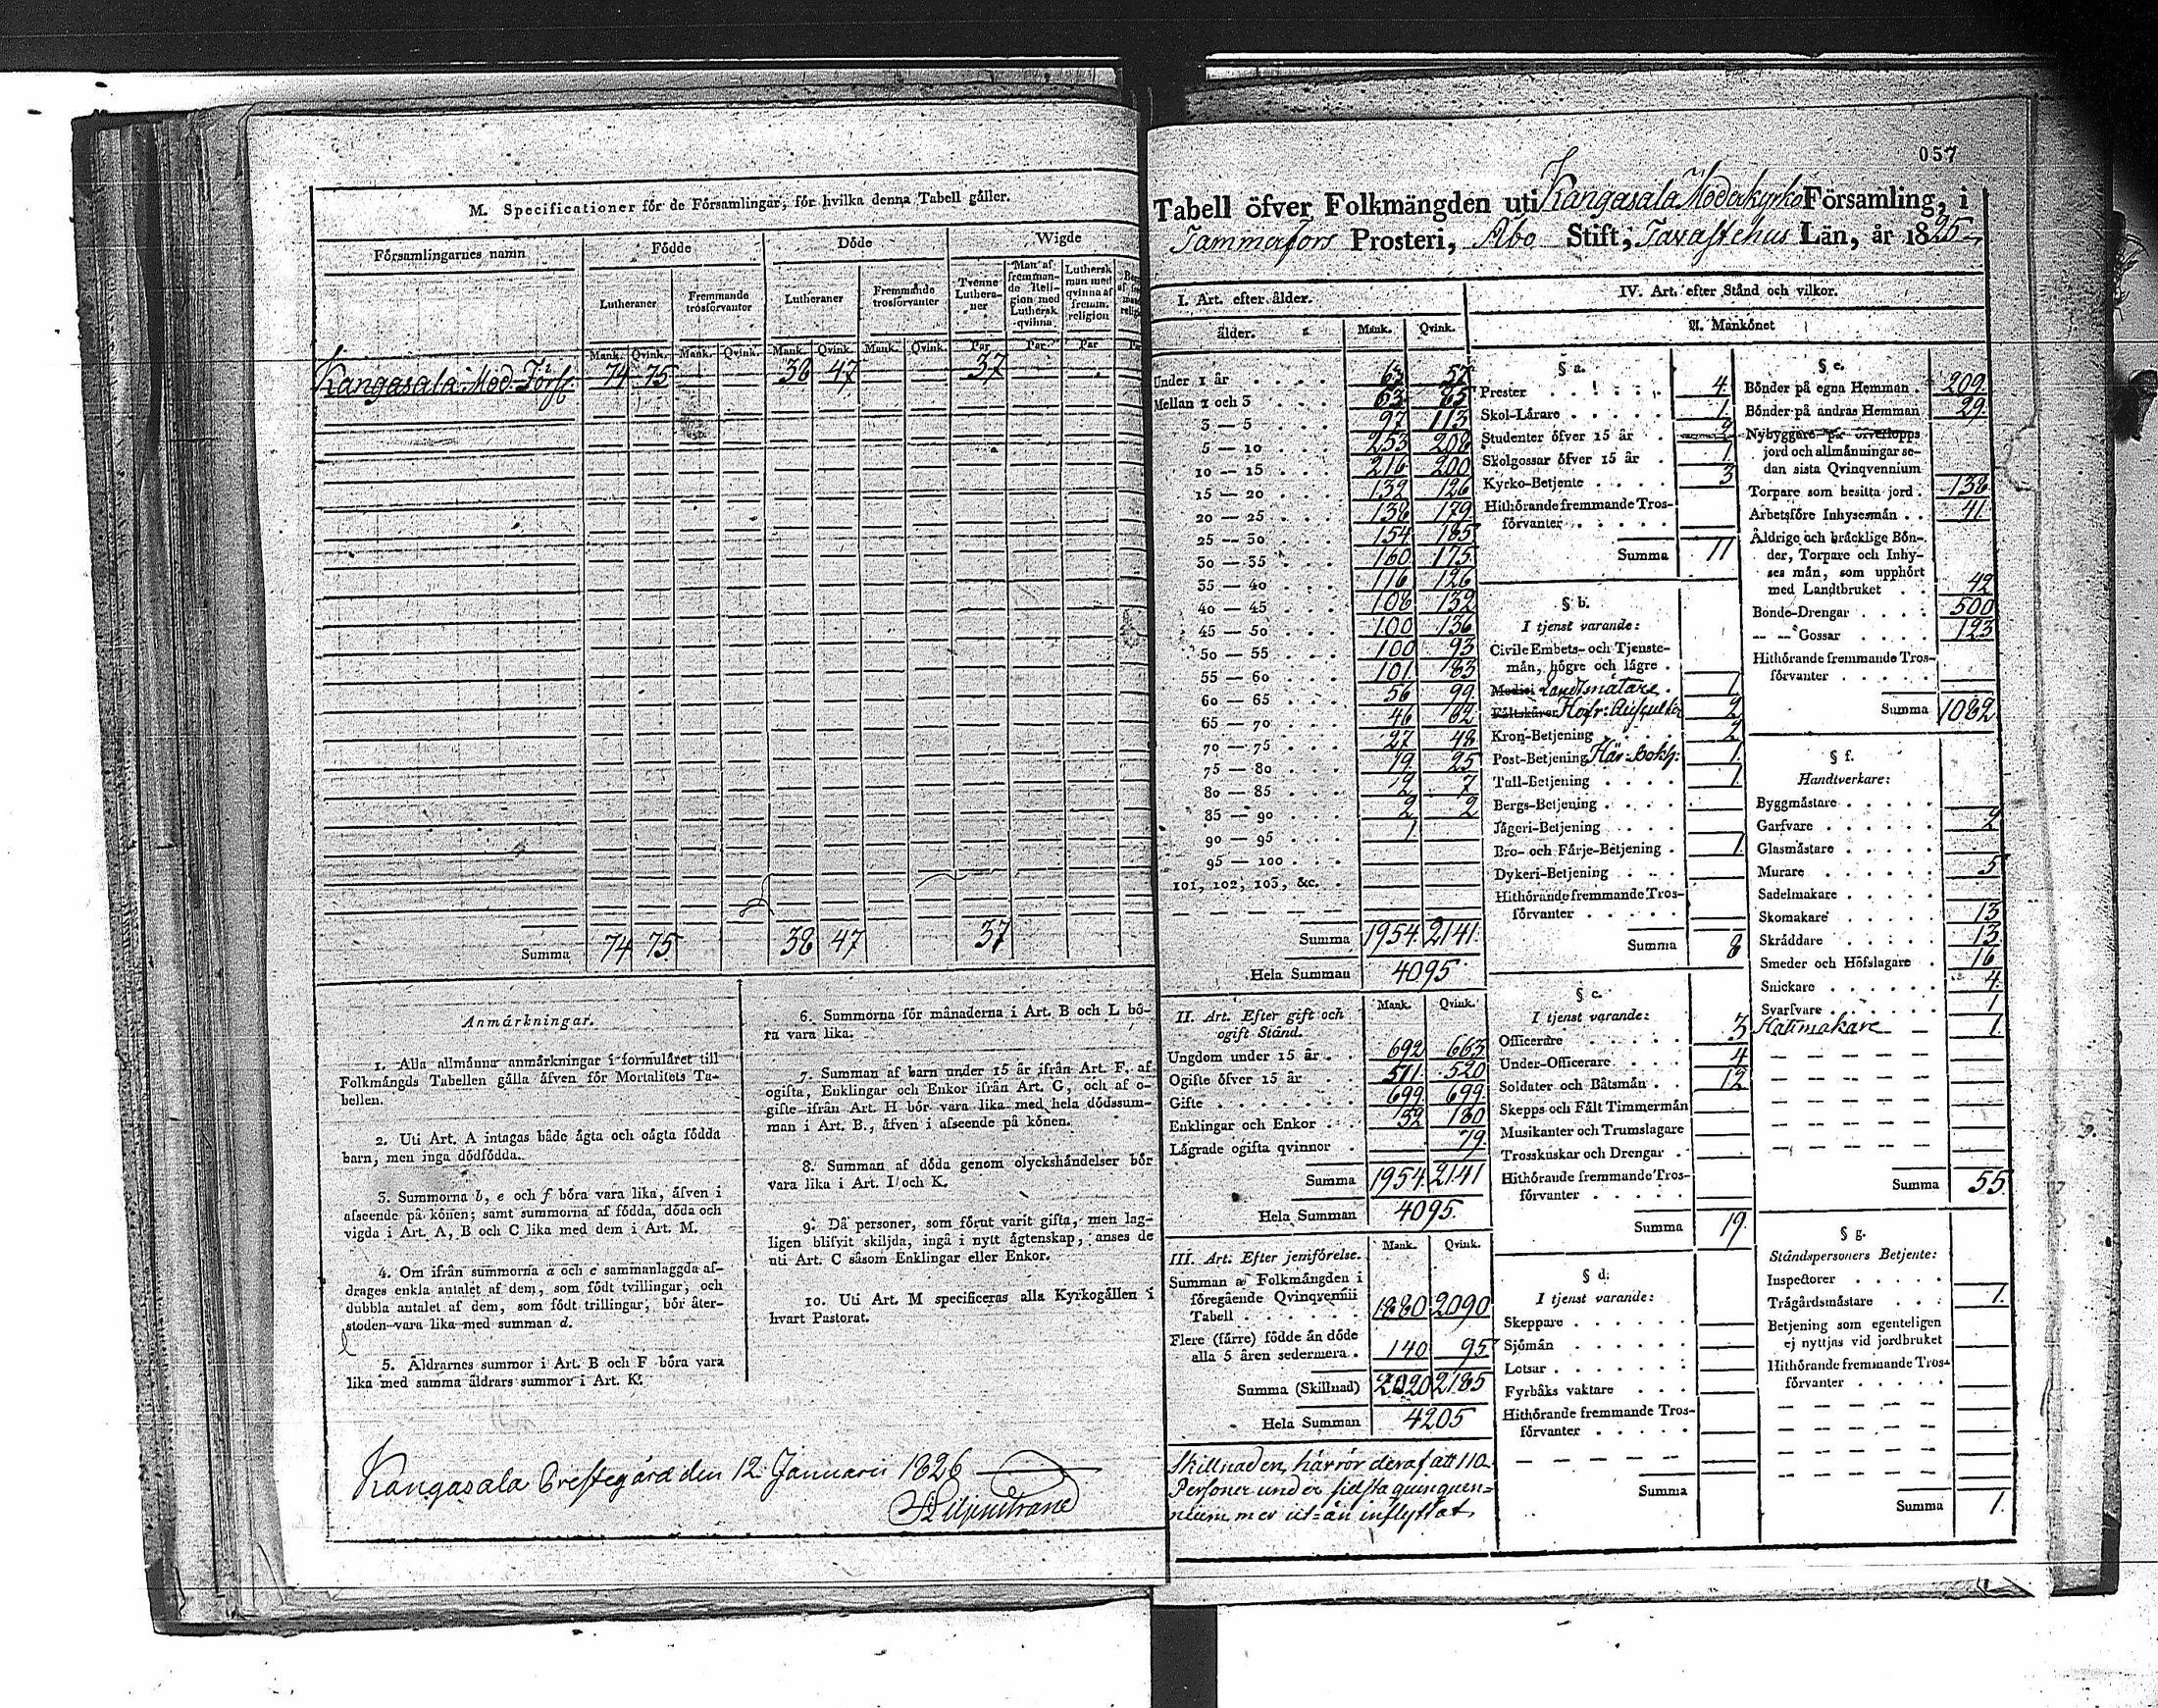 M. Specificationer för de Församlingar, för hvilka denna Tabell gäller.
Församlingarnes namn
Födde
Döde
Wigde
Lutheraner
Fremmande trosförvanter
Lutheraner
Fremmande trosförvanter
Tvenne Lutheraner
Man af fremmande Religion med Luthersk qvinna
Luthersk man med qvinna af fremm. religion
Mank. Qvink. Mank. Qvink. Mank. Qvink. Mank. Qvink. Par Par Par
Kangasala Mod. Förs. 74 75 38 47 37
Summa 74 75 38 47 37
Anmärkningar.
1. Alla allmänna anmärkningar i formuläret till
Folkmängds Tabellen gälla äfven för Mortalitets Ta-
bellen.
2. Uti Art. A intagas både ägta och oägta födda
barn, men inga dödfödda.
3. Summorna b, e och f böra vara lika, äfven i
afseende på könen; samt summorna af födda, döda och
vigda i Art. A, B och C lika med dem i Art. M.
4. Om ifrån summorna a och c sammanlaggda af-
drages enkla antalet af dem, som födt tvillingar, och
dubbla antalet af dem, som födt trillingar, bör åter-
stoden vara lika med summan d.
5. Åldrarnes summor i Art. B och F böra vara
lika med samma åldrars summor i Art. K.
6. Summorna för månaderna i Art. B och L bö-
ra vara lika.
7. Summan af barn under 15 år ifrån Art. F, af
ogifta, Enklingar och Enkor ifrån Art. G, och af o-
gifte ifrån Art. H bör vara lika med hela dödssum-
man i Art. B., äfven i afseende på könen.
8. Summan af döda genom olyckshändelser bör
vara lika i Art. I och K.
9. Då personer, som förut varit gifta, men lag-
ligen blifvit skiljda, ingå i nytt ägtenskap, anses de
uti Art. C såsom Enklingar eller Enkor.
10. Uti Art. M specificeras alla Kyrkogällen i
hvart Pastorat.
Kangasala Prestegård den 12 Januarii 1826
057
Tabell öfver Folkmängden uti Kangasala Moderkyrko Församling, i
Tammerfors Prosteri, Åbo Stift, Tavastehus Län, år 1825
I. Art. efter ålder.
ålder. Mank. Qvink.
Under 1 år 57
Mellan 1 och 3 63 65
3 — 5 97 113
5 — 10 253 208
10 — 15 216 200
15 — 20 132 126
20 — 25 138 179
25 — 30 154 185
30 — 35 160 175
35 — 40 116 126
40 — 45 108 132
45 — 50 100 136
50 — 55 100 93
55 — 60 101 183
60 — 65 56 99
65 — 70 46 62
70 — 75 27 48
75 — 80 19 25
80 — 85 7
85 — 90 2 2
90 — 95 1
95 — 100
101, 102, 103, &c.
Summa 1954 2141
Hela Summan 4095
II. Art. Efter gift och
ogift Stånd. Mank. Qvink.
Ungdom under 15 år 692 663
Ogifte öfver 15 år 511 520
Gifte 699 699
Enklingar och Enkor 52 180
Lägrade ogifta qvinnor 79
Summa 1954 2141
Hela Summan 4095
III. Art. Efter jemförelse. Mank. Qvink.
Summan af Folkmängden i
föregående Qvinqvennii
Tabell 1880 2090
Flere (färre) födde än döde
alla 5 åren sedermera 140 95
Summa (Skillnad) 2020 2185
Hela Summan 4205
Skillnaden härrör deraf att 110
Personer under sidsta quinquen=
nium mer ut= än inflyttat,
IV. Art. efter Stånd och vilkor.
A. Mankönet
§ a.
Prester 4
Skol-Lärare 1
Studenter öfver 15 år 2
Skolgossar öfver 15 år 1
Kyrko-Betjente 3
Hithörande fremmande Tros-
förvanter
Summa 11
§ b.
I tjenst varande:
Civile Embets- och Tjenste-
män, högre och lägre
Medici Landtmätare 1
Fältskärer Hofr: Auscultar 2
Kron-Betjening 2
Post-Betjening Här: Bokh: 1
Tull-Betjening 1
Bergs-Betjening
Jägeri-Betjening
Bro- och Färje-Betjening 1
Dykeri-Betjening
Hithörande fremmande Tros-
förvanter
Summa 8
§ c.
I tjenst varande:
Officerare 3
Under-Officerare 4
Soldater och Båtsmän 12
Skepps och Fält Timmermän
Musikanter och Trumslagare
Trosskuskar och Drengar
Hithörande fremmande Tros-
förvanter
Summa 19
§ d.
I tjenst varande:
Skeppare
Sjömän
Lotsar
Fyrbåks vaktare
Hithörande fremmande Tros-
förvanter
Summa
§ e.
Bönder på egna Hemman 209
Bönder på andras Hemman 29
Nybyggare på öfverlopps
jord och allmänningar se-
dan sista Qvinqvennium
Torpare som besitta jord 138
Arbetsföre Inhysesmän 41
Åldrige och bräcklige Bön-
der, Torpare och Inhy-
ses män, som upphört
med Landtbruket 42
Bonde-Drengar 500
— — Gossar 123
Hithörande fremmande Tros-
förvanter
Summa 1082
§ f.
Handtverkare:
Byggmästare
Garfvare 2
Glasmästare
Murare 5
Sadelmakare
Skomakare 13
Skräddare 13
Smeder och Hofslagare 16
Snickare 4
Svarfvare 1
Hattmakare 1
Summa 55
§ g.
Ståndspersoners Betjente:
Inspectorer
Trägårdsmästare 1
Betjening som egenteligen
ej nyttjas vid jordbruket
Hithörande fremmande Tros-
förvanter
Summa 1